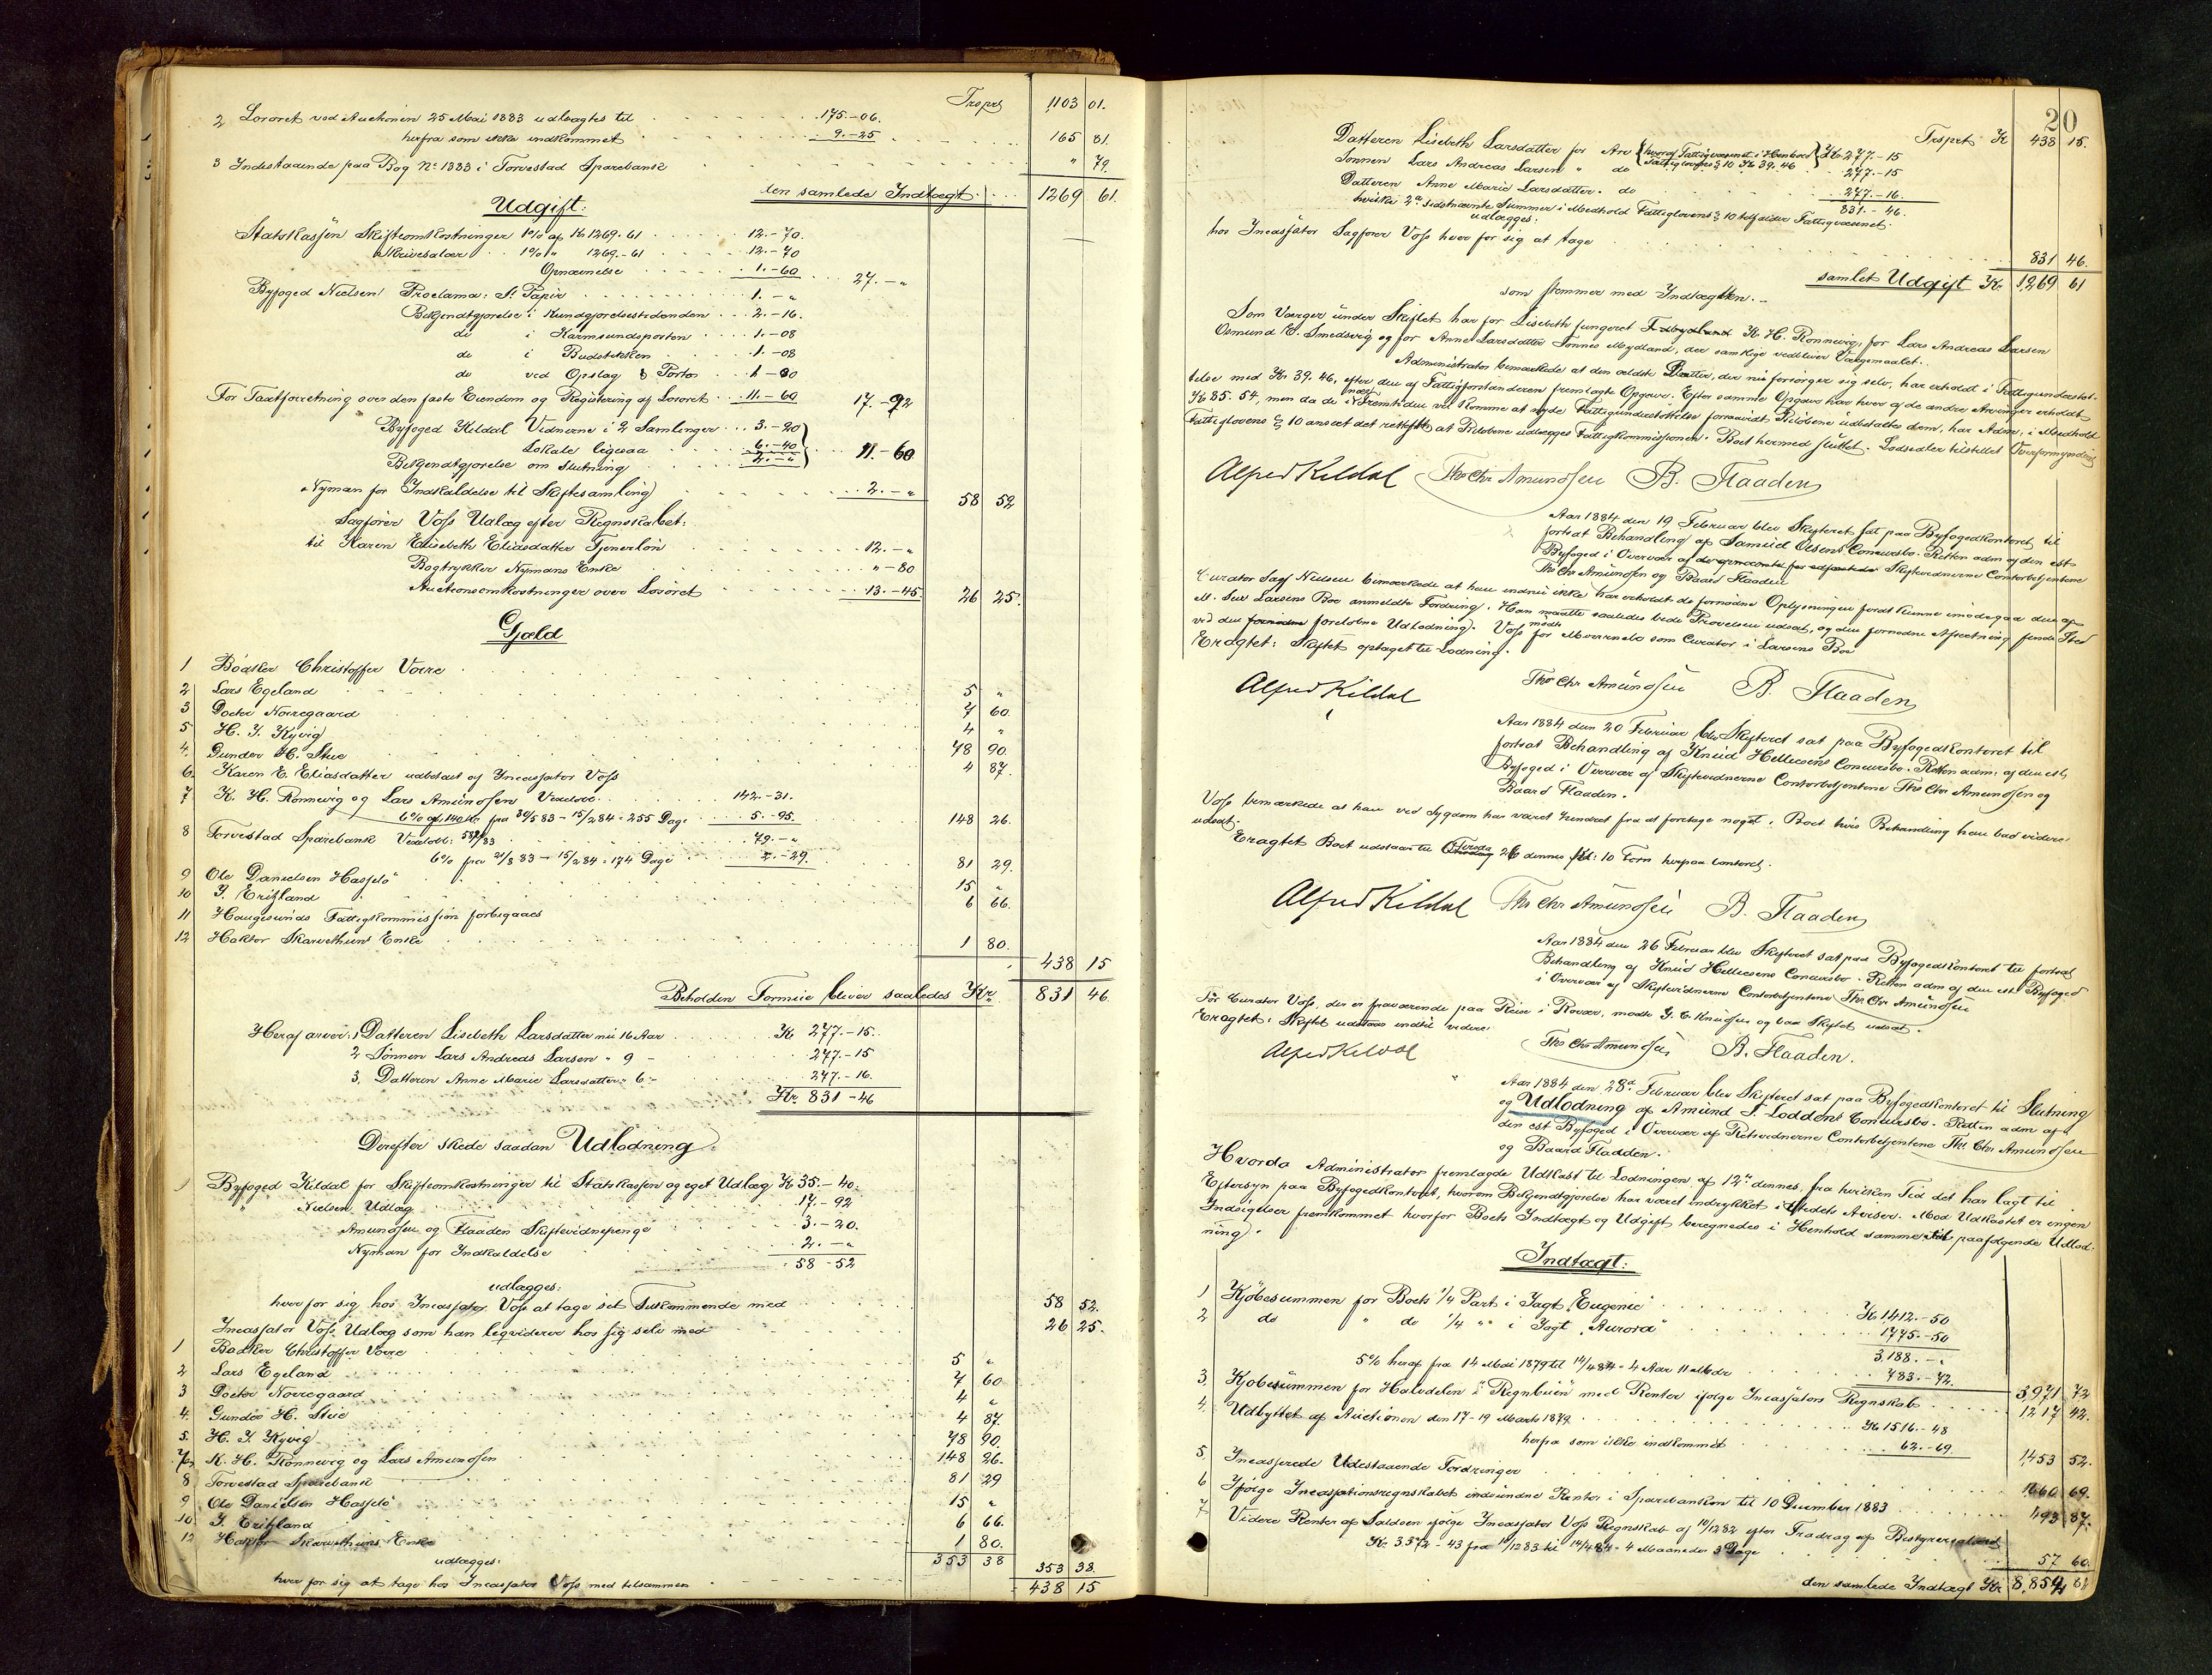 Trsprt 1103 01.
2 Løsøret ved Auctionen 25 Mai 1883 udbragtes til 175.-06.
herfra som ikke indkommet 9.-25 165 81.
3 Indestaaende paa Bog No 1383 i Torvestad Sparebank " 79.
den samlede Indtægt 1269 61.
Udgift:
Statskassen Skifteomkostninger 1% af Kr 1269.61 12.-70.
Skrivesalær 1% " 1269.-61 12.-70
Opnævnelse 1.-60 27.-"
Byfoged Nielsen Proclama: St. Papir 1.-"
Bekjendtgjørelse i Kundgjørelsestidenden 2.-16.
do i Karmsundsposten 1.-08
do i Budstikken 1.-08
do ved Opslag & Porto 1-00
For Taxtforretning over den faste Eiendom og Registering af Løsøret 11.-60 17.-92
Byfoged Kildal Vidnerne i 2 Samlinger 3.-20
Lokale ligesaa 6.-40
Bekjendtgjørelse om Slutning 2.-" 11.-60
Nyman for Indkaldelse til Skiftesamling 2.-" 58 52
Sagfører Voss Udlæg efter Regnskabet:
til Karen Elisabeth Eliasdatter Tjenerløn 12.-"
Bogtrykker Nymans Enke "-80
Auctionsomkostninger over Løsøret 13.-45 26 25.
Gjæld
1 Bødker Christoffer Vorre 5 "
2 Lars Egeland 7 60.
3 Doctor Nørregaard 4 "
5 H. J. Kyvig 78 90.
4. Gunder H. Stue 4 87.
6. Karen E. Eliasdatter udbetalt af Incassator Voss
7 K. H. Rønnevig og Lars Amundsen Vexelobl. 142.-31.
6% af 140 Kr fra 30/5 83 - 15/2 84 = 255 Dage 5.-95. 148 26.
8 Torvestad Sparebank Vexelobl: 79.-"
6% fra 21/8 83 - 15/2 84 = 174 Dage 2.-29. 81 29.
9 Ole Danielsen Hasselø 15 "
10 J. Erihland 6 66.
11 Haugesunds Fattigkommission forbigaaes
12 Haktor Skarvethuns Enke 1 80.
438 15
Beholden Formue bliver saaledes Kr. 831 46.
Heraf arver: 1 Datteren Lisebeth Larsdatter nu 16 Aar Kr 277.-15.
2 Sønnen Lars Andreas Larsen " 9 - 277.-15
3. Datteren Anne Marie Larsdatter " 6 - 277.-16.
Kr. 831-46
Derefter skede saadan Udlodning
Byfoged Kildal for Skifteomkostninger til Statskassen og eget Udlæg Kr 35.-40.
" Nielsen Udlæg 17.-92
Amundsen og Flaaden Skiftevidnepenge 3.-20.
Nyman for Indkaldelse 2.-"
58-52
udlægges:
hver for sig hos Incassator Voss at tage sit Tilkommende med 58 52.
Incassator Voss Udlæg som han liqviderer hos sig selv med 26 25.
1 Bødker Christoffer Vorre 5 "
2 Lars Egeland 7 60
3 Doctor Nørregaard 4 "
4. Gunder H. Stue 4 87.
5. H. J. Kyvig 78 90.
7. K. H. Rønnevig og Lars Amundsen 148 26.
8 Torvestad Sparebank 81 29
9 Ole Danielsen Hasselø 15 "
10 J. Erihland 6 66.
12 Haktor Skarvethuns Enke 1 80.
udlægges: 353 38 353 38.
hver for sig at tage hos Incassator Voss med tilsammen 438 15
20
Trsprt Kr 438 15.
Datteren Lisebeth Larsdatter for Arv hvoraf Fattigvæsenet i Henhold Fattiglovens § 10 Kr 39.46 Kr. 277.-15
Sønnen Lars Andreas Larsen " do 277.-15
Datteren Anne Marie Larsdatter. do 277.-16.
hvilke 2de sidstnævnte Summer i Medhold Fattiglovens § 10 tilfalder Fattigvæsenet. 831.-46.
udlægges:
hos Incassator Sagfører Voss hver for sig at tage 831 46.
samlet Udgift Kr. 1269 61
som stemmer med Indtægten.-
Som Værger under Skiftet har for Lisebeth fungeret K. H. Rønnevig, for Lars Andreas Larsen
Osmund E. Smedsvig og for Anne Larsdatter Tønnes Mydland, der samtlige vedbliver Værgemaalet.
Administrator bemærkede at den ældste Datter, der nu forsørger sig selv, har erholdt i Fattigunderstøt-
telse med Kr 39.46, efter den af Fattigforstanderen fremlagte Opgave. Efter samme Opgave har hver af de andre Arvinger erholdt
Kr 85.54, men da de i Fremtiden vil komme at nyde Fattigunderstøttelse forsaavidt Beløbene udbetaltes dem, har Adm. i Medhold
Fattiglovens § 10 anseet det rettest at Beløbene udlægges Fattigkommissionen. Boet hermed sluttet. Lodsedler tilstillet Overformynderiet
Alfred Kildal Ths Chr Amundsen B. Flaaden
Aar 1884 den 19 Februar blev Skifteret sat paa Byfogedkontoret til
fortsat Behandling af Samuel Olsens Concursbo. Retten adm af den est
Byfoged i Overvær af Skiftevidnerne Contorbetjentene
Ths Chr Amundsen og Baard Flaaden
Curator Sagf Nielsen bemærkede at han endnu ikke har erholdt de fornødne Oplysninger fordt kunne imødegaa den af
M. Sev Larsens Bo anmeldte Fordring. Han maatte saaledes bede Prøvelsen udsat, og den fornødne Afsætning finde Sted
ved den foreløbne Udlodning. Voss mødte for Mværende som Curator i Larsens Bo
Eragtet: Skiftet optaget til Lodning.
Alfred Kildal Ths Chr Amundsen B. Flaaden
Aar 1884 den 20 Februar blev Skifteret sat paa Byfogedkontoret til
fortsat Behandling af Knud Hellicsens Concursbo. Retten adm: af den est,
Byfoged i Overvær af Skiftevidnerne Contorbetjentene Ths Chr Amundsen og
Baard Flaaden.
Voss bemærkede at han ved Sygdom har været hindret fra at foretage noget. Boet hvis Behandling han bad videre
udsat.
Eragtet Boet udstaar til Tirsdag 26 dennes Kl: 10 Form herpaa Contoret.
Alfred Kildal Ths Chr Amundsen B. Flaaden
Aar 1884 den 26 Februar blev Skifteret sat paa Byfogedkontoret til fortsat
Behandling af Knud Hellicsens Concursbo. Retten adm af den est Byfoged
i Overvær af Skiftevidnerne Contorbetjentene Ths Chr Amundsen
For Curator Voss, der er fraværende paa Reise i Røvær, mødte G. C. Knudsen og bad Skiftet udsat.
Eragtet: Skiftet udstaar indtil videre.
Alfred Kildal Ths Chr Amundsen B. Flaaden.
Aar 1884 den 28de Februar blev Skifteret sat paa Byfogedkontoret til Slutning
og Udlodning af Amund S. Loddens Concursbo. Retten adm af
den est Byfoged i Overvær af Retsvidnerne Contorbetjentene Ths. Chr. Amundsen
og Baard Fladden.
Hvorda Administrator fremlagde Udkast til Lodningen af 12te dennes, fra hvilken Tid det har lagt til
Eftersyn paa Byfogedkontoret, hvorom Bekjendtgjørelse har været indrykket i Stedets Aviser. Mod Udkastet er ingen
Indsigelser fremkommet hvorfor Boets Indtægt og Udgift beregnedes i Henhold samme til paafølgende Udlod-
ning.
Indtægt:
1 Kjøbesummen for Boets 1/4 Part i Jagt "Eugenie" Kr 1412.-50
2 do " do 1/4 " i Jagt "Aurora" 1775.-50
3188.-"
5% heraf fra 14 Mai 1879 til 14/4 84 = 4 Aar 11 Mdr 783.-72. 3971 72
3. Kjøbesummen for Halvdelen i "Regnbuen" med Renter ifølge Incassators Regnskab 1217 42.
4. Udbyttet af Auctionen den 17-19 Marts 1879 Kr 1516.-48
herfra som ikke indkommet 62.-69. 1453 52.
5. Incasserede Udestaaende Fordringer 1660 69.
6 Ifølge Incassationsregnskabet indvundne Renter i Sparebanken til 10 December 1883 493 87.
7. Videre Renter af Saldoen ifølge Incassator Voss Regnskab af 10/12 82 efter Fradrag af Bestyrersalæret
Kr. 3372-43 fra 10/12 83 til 14/4 84 = 4 Maaneder 3 Dage 57 60
den samlede Indtægt Kr 8,854